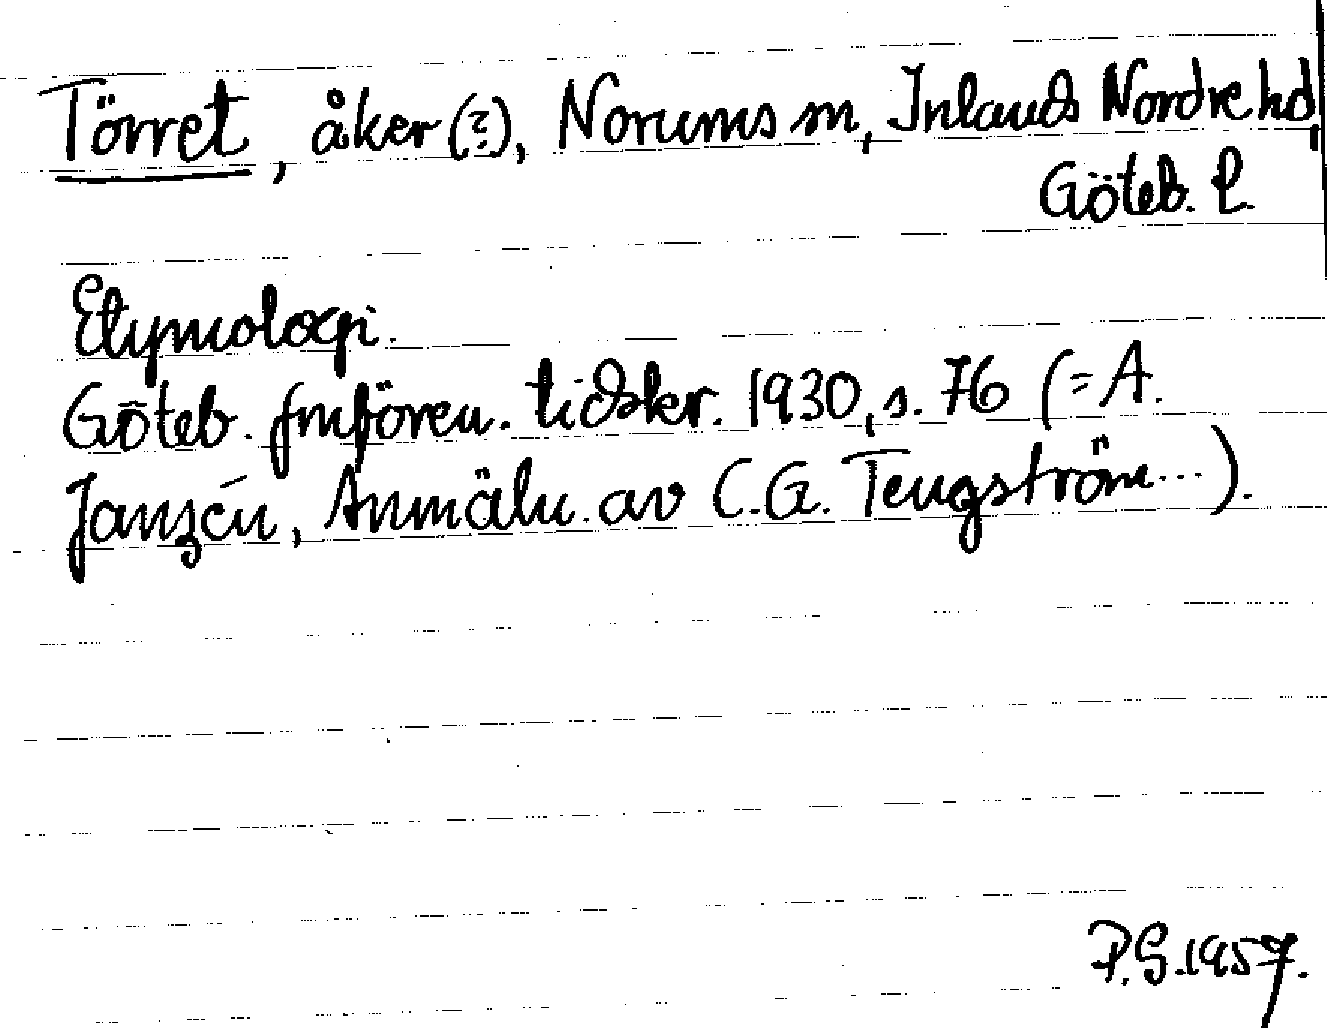 Törret, åker (?), Norums sn, Inlands Nordre hd,
Göteb. l.
Etymologi.
Göteb. fmfören. tidskr. 1930, s. 76 (= A.
Janzén, Anmäln. av C.G. Tengström...).
P.S. 1957.